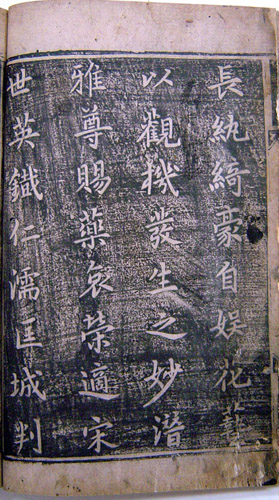 長紈綺豪自娯花藝
以觀機發生之妙潛
雅尊賜藥袞榮適宋
世英鐡仁濡匡城判